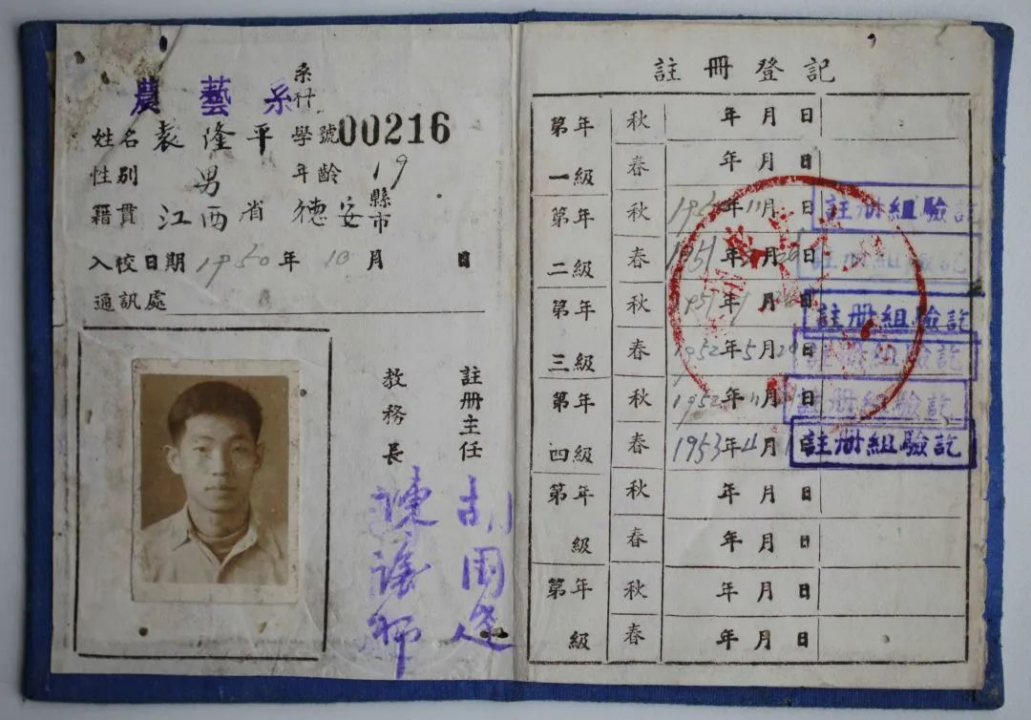 農藝系 系科
姓名 袁隆平 學號 00216
性別 男 年齡 19
籍貫 江西省 德安縣市
入校日期 1950年 10月 日
通訊處
註册主任
教務長
註冊登記
第一年級 秋 年 月 日
春 年 月 日
第二年級 秋 年11月 日 註册組驗訖
春 1951年 月 日 註册組驗訖
第三年級 秋 1951年 月 日 註册組驗訖
春 1952年5月 日 註册組驗訖
第四年級 秋 1952年11月 日 註册組驗訖
春 1953年4月 日 註册組驗訖
第年級 秋 年 月 日
春 年 月 日
第年級 秋 年 月 日
春 年 月 日